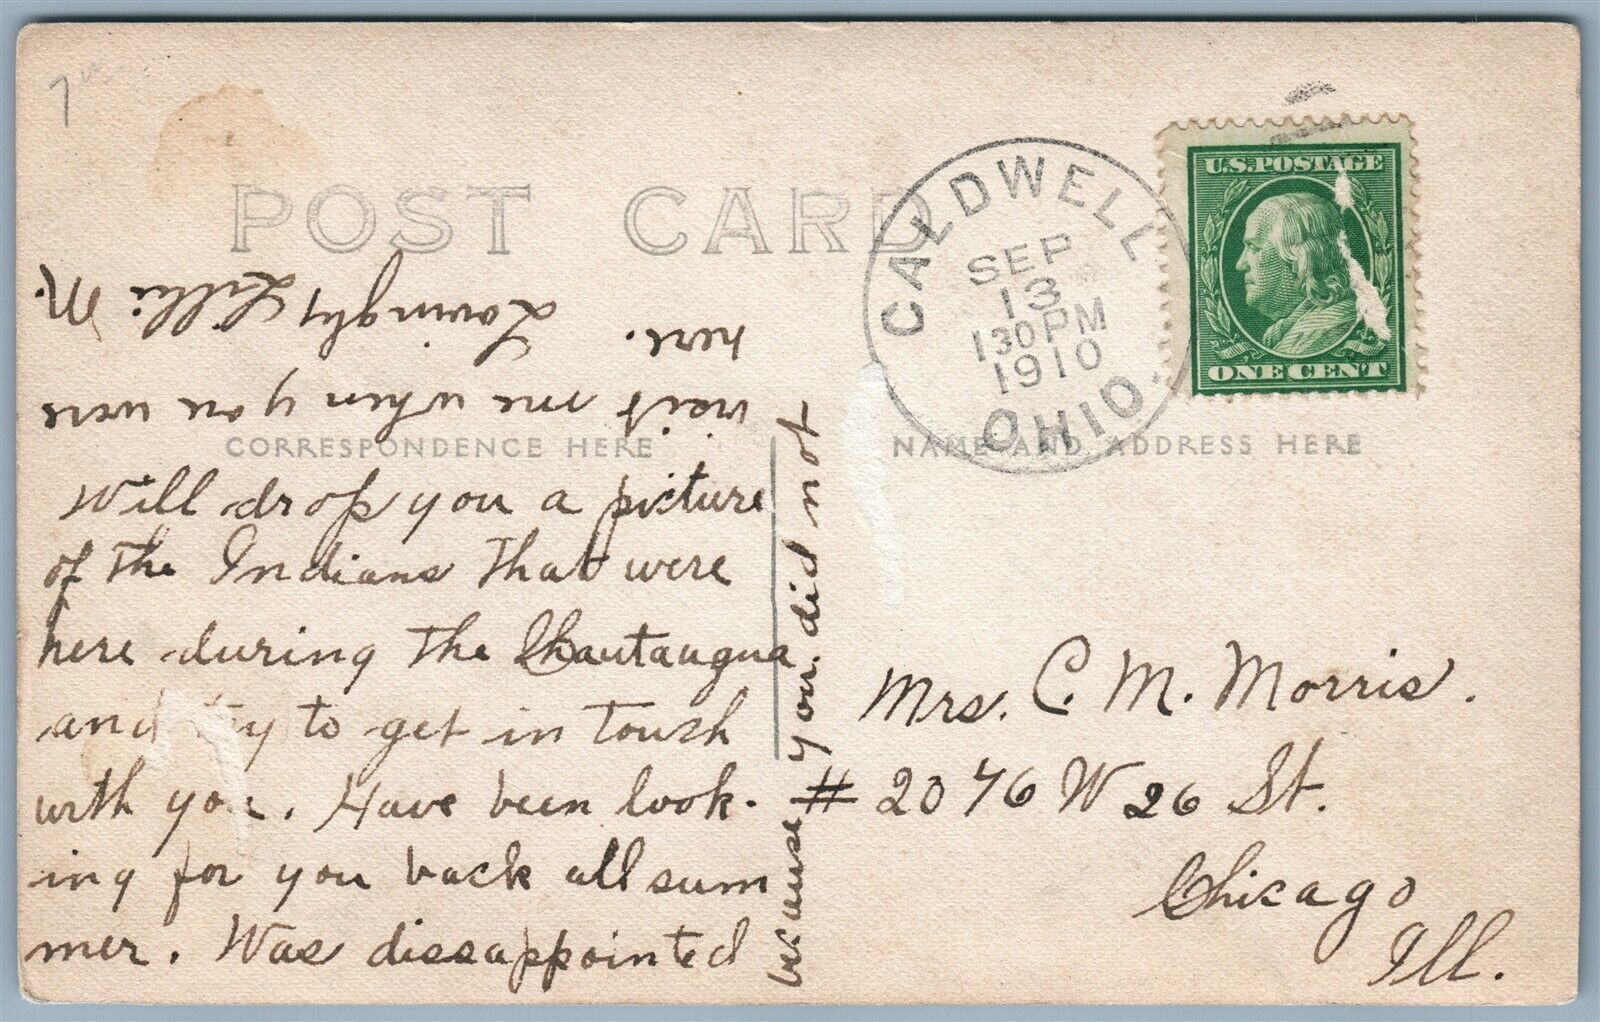 7
POST CARD
CALDWELL
SEP
13
130 PM
1910
OHIO.
U.S.POSTAGE
ONE CENT
CORRESPONDENCE HERE
NAME AND ADDRESS HERE
Will drop you a picture
of the Indians that were
here during the Chautauqua
and try to get in touch
with you. Have been look-
ing for you back all sum
mer. Was dissappointed
because you did not
visit me when you were
here.
Lovingly Lillie M.
Mrs. C. M. Morris.
# 2076 W 26 St.
Chicago
Ill.